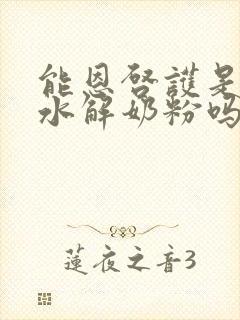 能恩啓護是
水解奶粉吗
蓮夜之音3